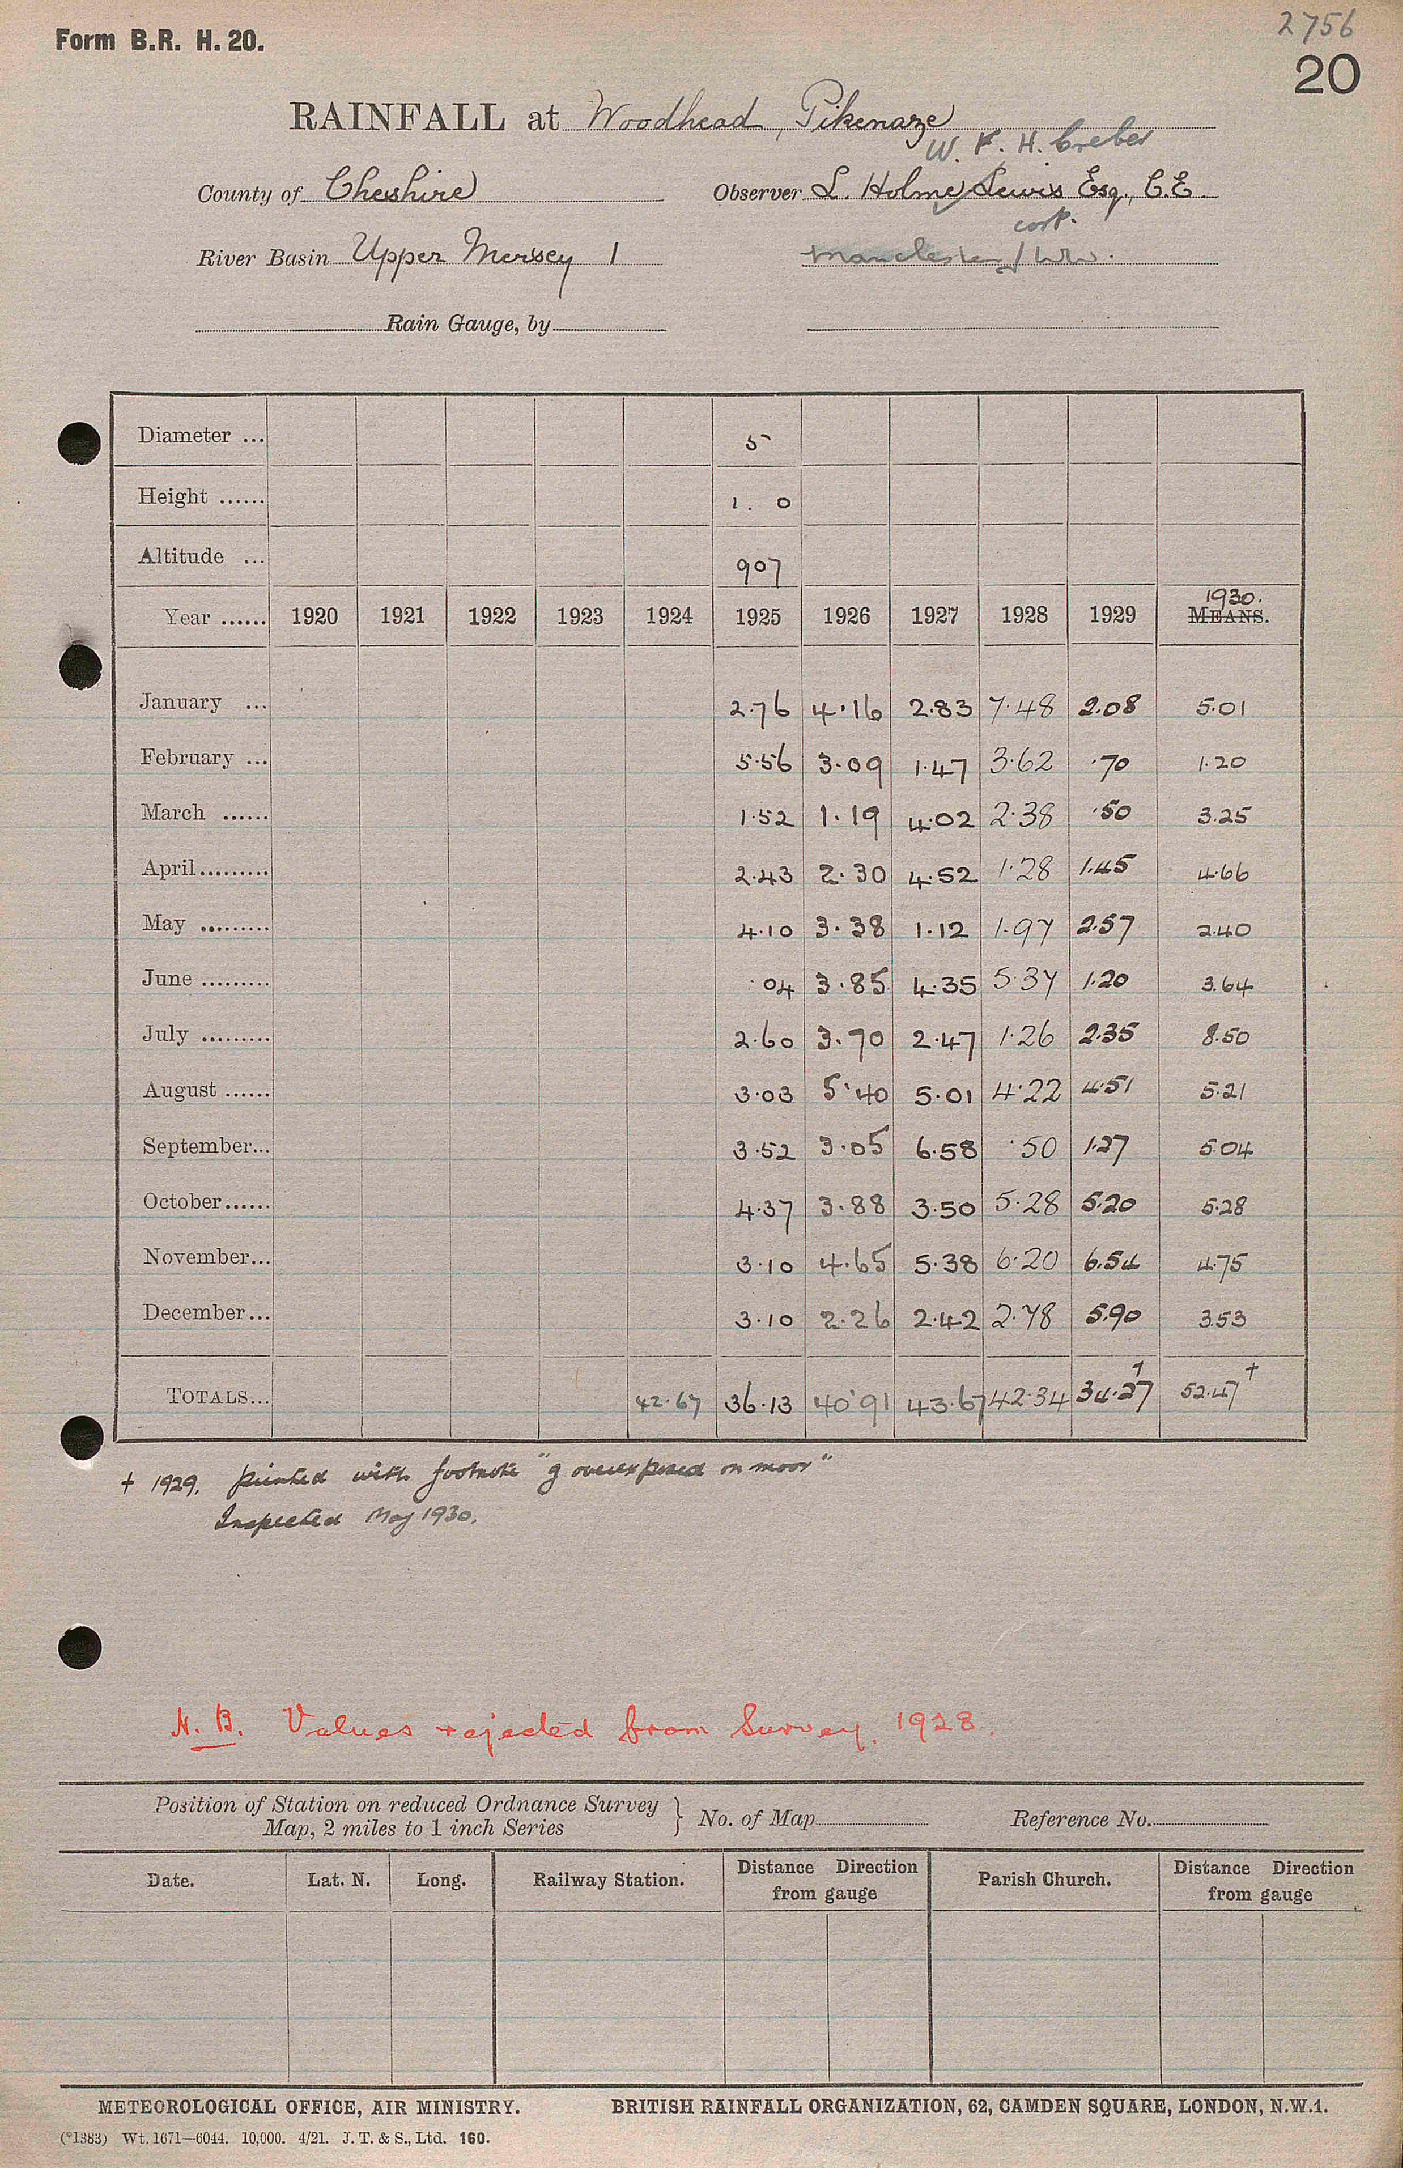 2756
Form B.R. H. 20.
20
RAINFALL at Woodhead, Pikenaze
W. F. H. Creber
County of Cheshire Observer L. Holme Lewis Esq., C.E.
corp.
River Basin Upper Mersey 1 Manchester WW.
Rain Gauge, by
Diameter ... 5
Height ...... 1. 0
Altitude ... 907
1930.
Year ...... 1920 1921 1922 1923 1924 1925 1926 1927 1928 1929 MEANS.
January ... 2.76 4.16 2.83 7.48 2.08 5.01
February ... 5.56 3.09 1.47 3.62 .70 1.20
March ...... 1.52 1.19 4.02 2.38 .50 3.25
April......... 2.43 2.30 4.52 1.28 1.45 4.66
May ......... 4.10 3.38 1.12 1.97 2.57 2.40
June ......... .04 3.85 4.35 5.37 1.20 3.64
July ......... 2.60 3.70 2.47 1.26 2.35 8.50
August ...... 3.03 5.40 5.01 4.22 4.51 5.21
September... 3.52 3.05 6.58 .50 1.27 5.04
October...... 4.37 3.88 3.50 5.28 5.20 5.28
November... 3.10 4.65 5.38 6.20 6.54 4.75
December... 3.10 2.26 2.42 2.78 5.90 3.53
TOTALS... 42.67 36.13 40.91 43.67 42.34 34.27† 52.47†
† 1929. printed with footnote "g overexposed on moor"
Inspected May 1930.
N. B. Values rejected from Survey. 1928.
Position of Station on reduced Ordnance Survey
Map, 2 miles to 1 inch Series } No. of Map Reference No.
Date. Lat. N. Long. Railway Station. Distance Direction from gauge Parish Church. Distance Direction from gauge
METEOROLOGICAL OFFICE, AIR MINISTRY. BRITISH RAINFALL ORGANIZATION, 62, CAMDEN SQUARE, LONDON, N.W.1.
(*1383) Wt. 1671—6044. 10,000. 4/21. J. T. & S., Ltd. 160.